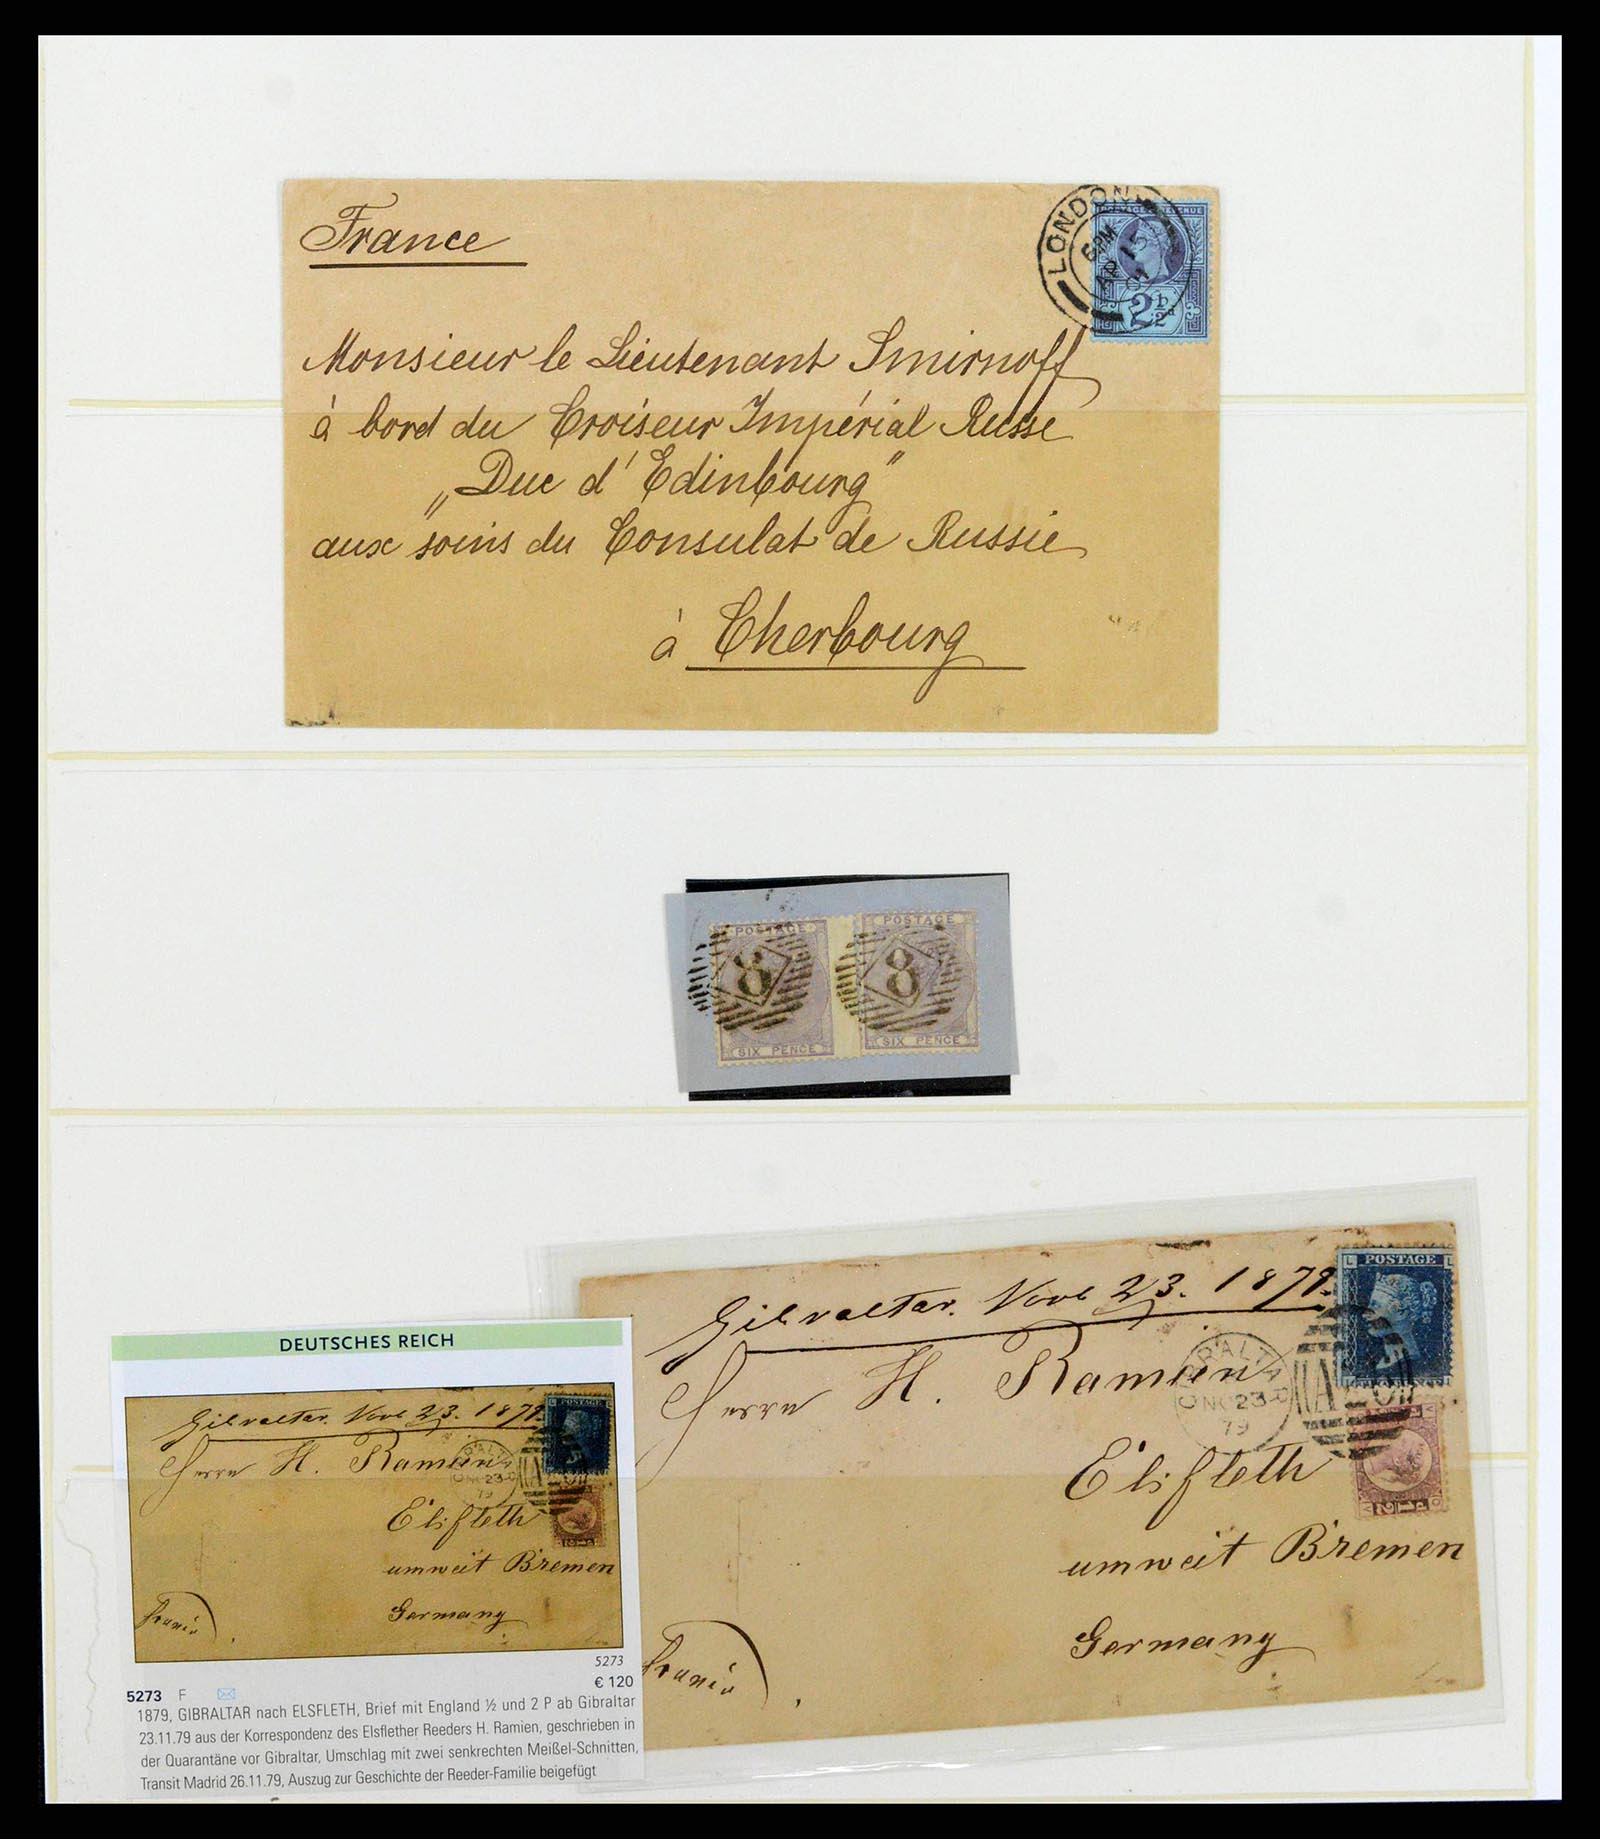 France
LONDON
6 PM
AP 15
01
POSTAGE & REVENUE
2½ᴰ
Monsieur le Lieutenant Smirnoff
à bord du Croiseur Impérial Russe
„Duc d'Edinbourg"
aux soins du Consulat de Russie
à Cherbourg
POSTAGE
8
SIX PENCE
POSTAGE
8
SIX PENCE
Gibraltar. Novb 23. 1879.
L POSTAGE L
Herrn H. Ramien
GIBRALTAR
NO 23
79
A
Elsfleth
umweit Bremen
Germany
franco
DEUTSCHES REICH
Gibraltar. Novb 23. 1879.
Herrn H. Ramien
Elsfleth
umweit Bremen
Germany
franco
5273
€ 120
5273 F
1879, GIBRALTAR nach ELSFLETH, Brief mit England ½ und 2 P ab Gibraltar
23.11.79 aus der Korrespondenz des Elsflether Reeders H. Ramien, geschrieben in
der Quarantäne vor Gibraltar, Umschlag mit zwei senkrechten Meißel-Schnitten,
Transit Madrid 26.11.79, Auszug zur Geschichte der Reeder-Familie beigefügt